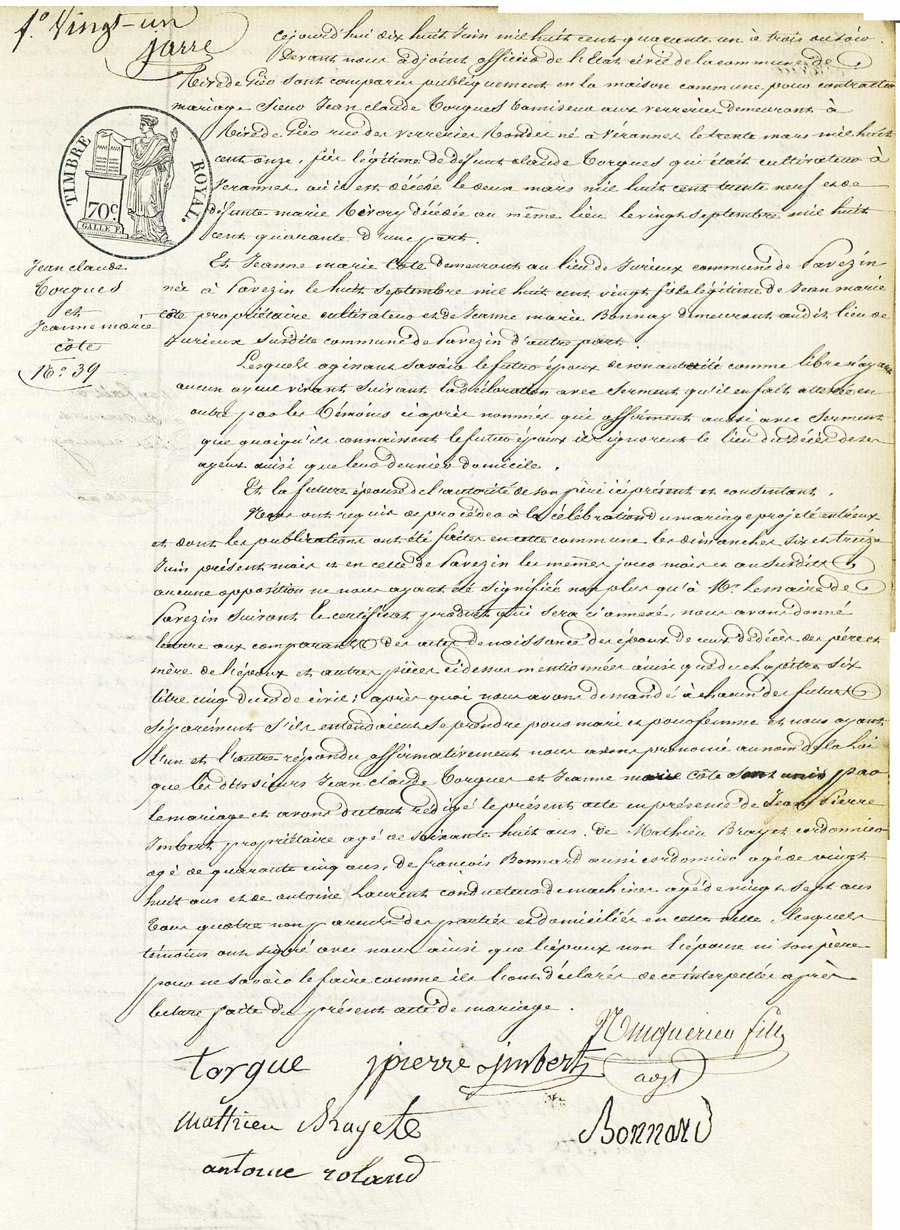 f.° Vingt-un
jarre
cejourd'hui dix huit Juin mil huit cent quarante un à trois du soir
Devant nous adjoint officier de l'état civil de la commune de
Rivedegiés sont comparus publiquement en la maison commune pour contracter
mariage Sieur Jean Claude Torgues Tamiseur aux verreries demeurant à
Rivedegiés rue des verreries Rondes né à Véranne le trente mars mil huit
cent onze, fils légitime de défunt claude Torgues qui était cultivateur à
Véranne où il est décédé le deux mars mil huit cent trente neuf et de
défunte marie décédée au même lieu le vingt septembre mil huit
cent quarante d'une part.
TIMBRE ROYAL.
70c.
Jean claude
Torgues
et
Jeanne marie
côte
N°. 39
Et Jeanne marie Côte demeurant au lieu de Jurieux commune de Pavezin
née à Pavezin le huit septembre mil huit cent vingt fille légitime de Jean marie
côte propriétaire cultivateur et de Jeanne marie Bonnay demeurant audit lieu de
Jurieux susdite commune de Pavezin d'autre part.
Lesquels agissant savoir le futur époux de son autorité comme libre n'ayant
aucun ayeul vivant suivant la déclaration avec serment qu'il en fait attestée en
outre par les témoins ci après nommés qui affirment aussi avec serment
que quoiqu'ils connaissent le futur époux ils ignorent le lieu du décès de ses
ayeux ainsi que leur dernier domicile.
Et la future épouse de l'autorité de son père ici présent et consentant.
Nous ont requis de procéder à la célébration du mariage projeté entr'eux
et dont les publications ont été faites en cette commune les dimanches six et treize
Juin présent mois et en celle de Pavezin les mêmes jours mois et an susdits
aucune opposition ne nous ayant été signifiée non plus qu'à Mr. le maire de
Pavezin suivant le certificat produit qui sera ci annexé, nous avons donné
lecture aux comparants des actes de naissance des époux de ceux de décès des père et
mère de l'époux et autres pièces ci dessus mentionnées ainsi que du chapitre six
titre cinq du code civil; après quoi nous avons demandé à chacun des futurs
séparément s'ils entendaient se prendre pour mari et pour femme et nous ayant
l'un et l'autre répondu affirmativement nous avons prononcé au nom de la loi
que les dits sieurs Jean claude Torgues et Jeanne marie côte sont unis par
le mariage et avons du tout rédigé le présent acte en présence de Jean Pierre
Imbert propriétaire agé de soixante huit ans, de Mathieu Brayet cordonnier
agé de quarante cinq ans, de françois Bonnard aussi cordonnier agé de vingt
huit ans et de antoine Laurent conducteur de machines agé de vingt sept ans
Tous quatre non parents des parties et domiciliés en cette ville, lesquels
témoins ont signé avec nous ainsi que l'époux non l'épouse ni son père
pour ne savoir le faire comme ils l'ont déclaré de ce interpellés après
lecture faite du présent acte de mariage.
Torgue jpierre jmbert fils
adjt
mathieu Brayete Bonnard
antoine roland